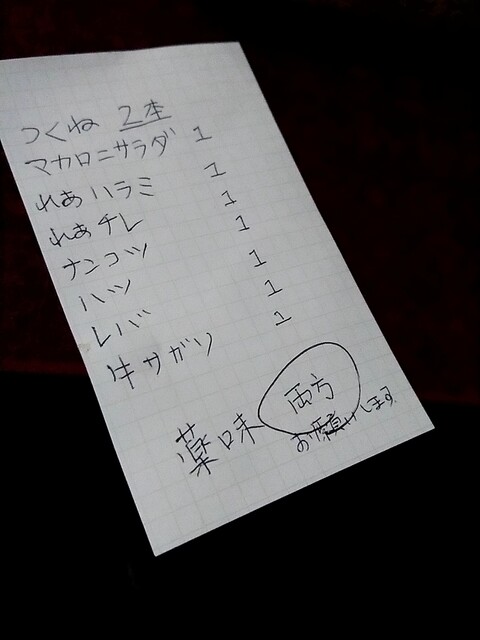 つくね 2本
マカロニサラダ 1
れあハラミ 1
れあチレ 1
ナンコツ 1
ハツ 1
レバ 1
牛サガリ 1
薬味 両方
お願いします